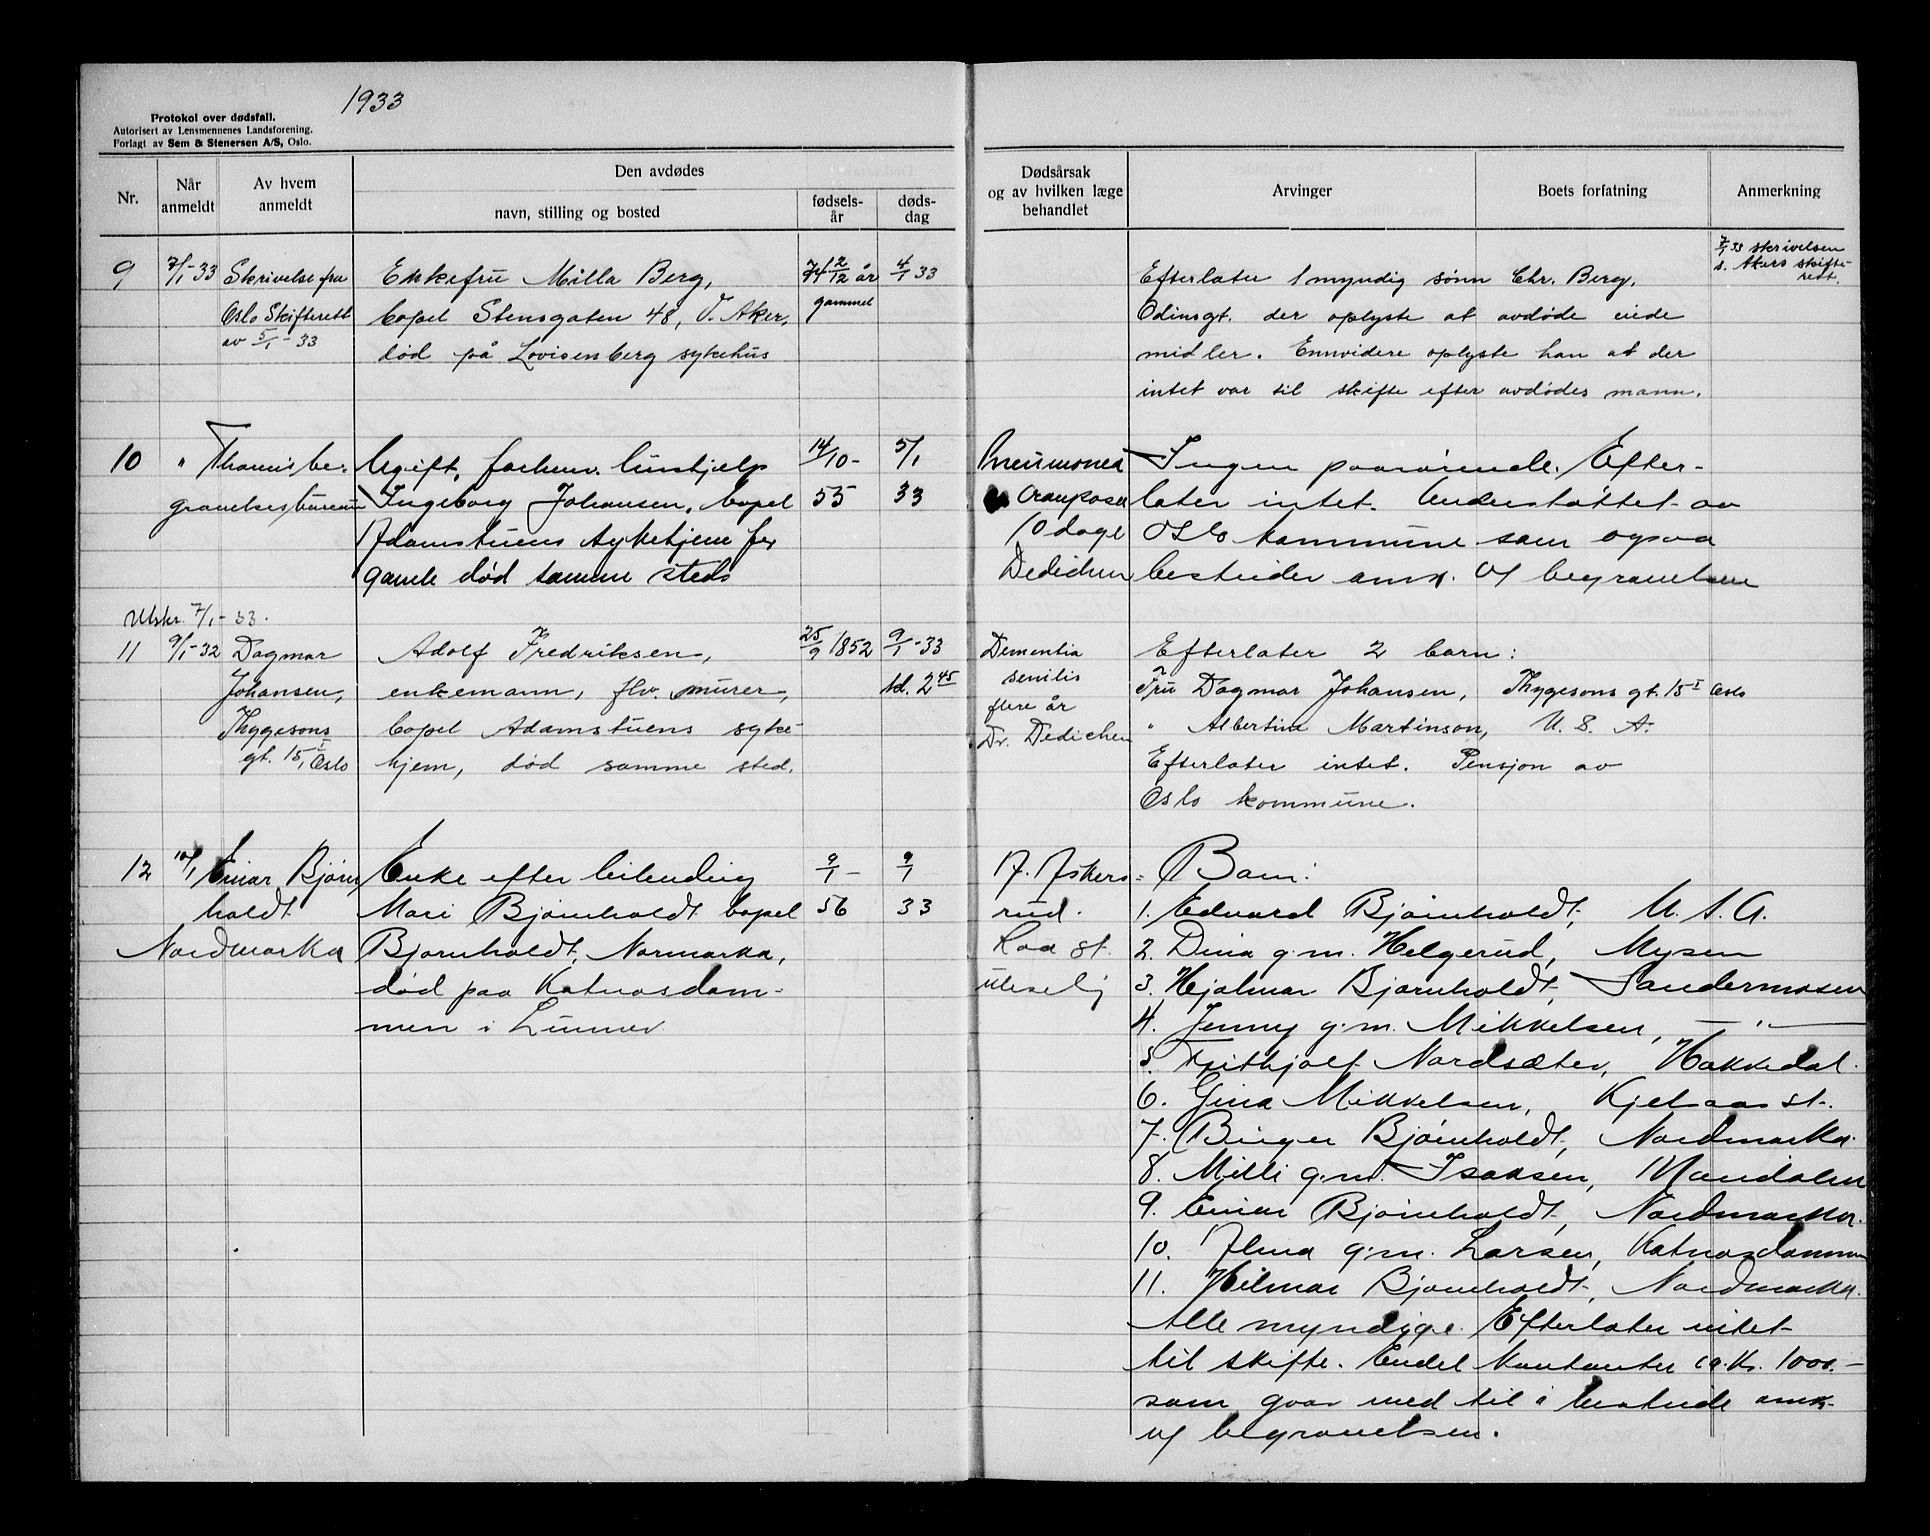 1933
Protokol over dødsfall.
Autorisert av Lensmennenes Landsforening.
Forlagt av Sem & Stenersen A/S, Oslo.
Nr.
Når anmeldt
Av hvem anmeldt
Den avdødes
navn, stilling og bosted
fødsels-
år
døds-
dag
Dødsårsak
og av hvilken læge
behandlet
Arvinger
Boets forfatning
Anmerkning
9 7/1-33 Skrivelse fra
Oslo Skifterett
av 5/1-33
Enkefru Milla Berg,
bopel Stensgaten 48, V. Aker,
død på Lovisenberg sykehus
74 2/12 år
gammel
4/1 33
Efterlater 1 myndig sønn Chr. Berg,
Odinsgt. der oplyste at avdøde eide
midler. Ennvidere oplyste han at der
intet var til skifte efter avdødes mann.
7/1 33 skrivelsen
s. Akers skifte-
rett.
10 " Thomis be-
gravelsesbureau
Ugift, forhenv. hushjelp
Ingeborg Johansen, bopel
Adamstuens sykehjem
død samme steds
14/10-
55
5/1
33
Pneumonia
crouposa
10 dage
Dedichen
Ingen paarørende. Efter-
later intet. Understøttet av
Oslo kommune som ogsaa
bestrider omk. v/ begravelsen
Utskr. 7/1-33.
11 9/1-32 Dagmar
Johansen,
Thygesons
gt. 15 I, Oslo
Adolf Fredriksen,
enkemann, fhv. murer,
bopel Adamstuens syke-
hjem, død samme sted.
25/9 1852
9/1-33
kl. 2 45
Dementia
senilis
flere år
Dr. Dedichen
Efterlater 2 barn:
Fru Dagmar Johansen, Thygesons gt. 15 I Oslo
" Albertine Martinson, U. S. A.
Efterlater intet. Pensjon av
Oslo kommune.
12 10/1 Einar Bjørn
holdt
Nordmarka
Enke efter leilending
Mari Bjørnholdt bopel
Bjørnholdt, Normarka,
død paa Katnosdam-
men i Lunner
9/1-
56
9/1
33
A. Askers-
rud.
Roa st.
Barn:
1. Edvard Bjørnholdt, U. S. A.
2. Dina g.m. Helgerud, Mysen
3. Hjalmar Bjørnholdt, Sandermosen
4. Jenny g.m. Mikkelsen, — " —
5. Frithjolf Nordsæter, Hakkedal.
6. Gina Mikkelsen, Kjelsaas st.
7. Birger Bjørnholdt, Nordmarka.
8. Milli g.m. Isaksen, Maridalen
9. Einar Bjørnholdt, Nordmarka.
10. Alma g.m. Larsen, Katnosdammen
11. Hilmar Bjørnholdt, Nordmarka.
Alle myndige. Efterlater intet
til skifte. Endel kontanter ca. Kr. 1000.-
som gaar med til å bestride omk.
v/ begravelsen.